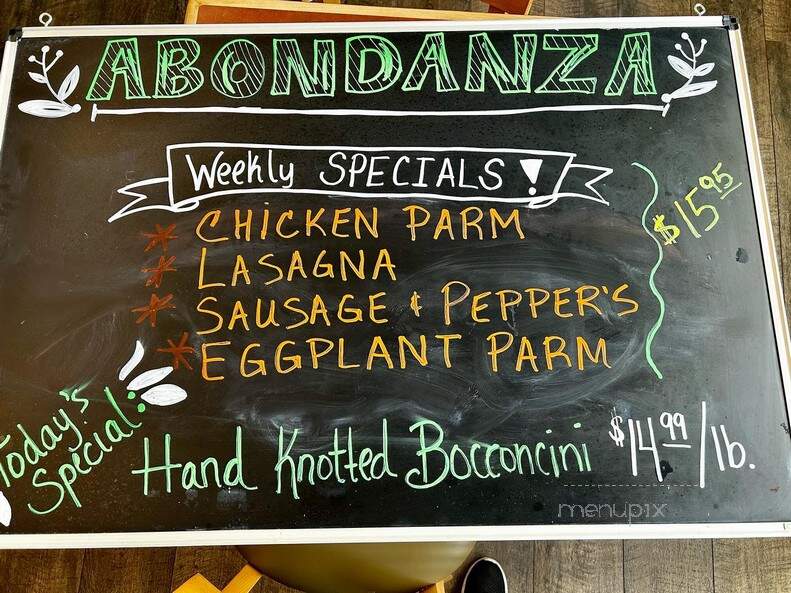 ABONDANZA
Weekly SPECIALS!
* CHICKEN PARM
* LASAGNA
* SAUSAGE & PEPPER'S
* EGGPLANT PARM
$15.95
Today's
Special:
Hand Knotted Bocconcini $14.99/lb.
menupix